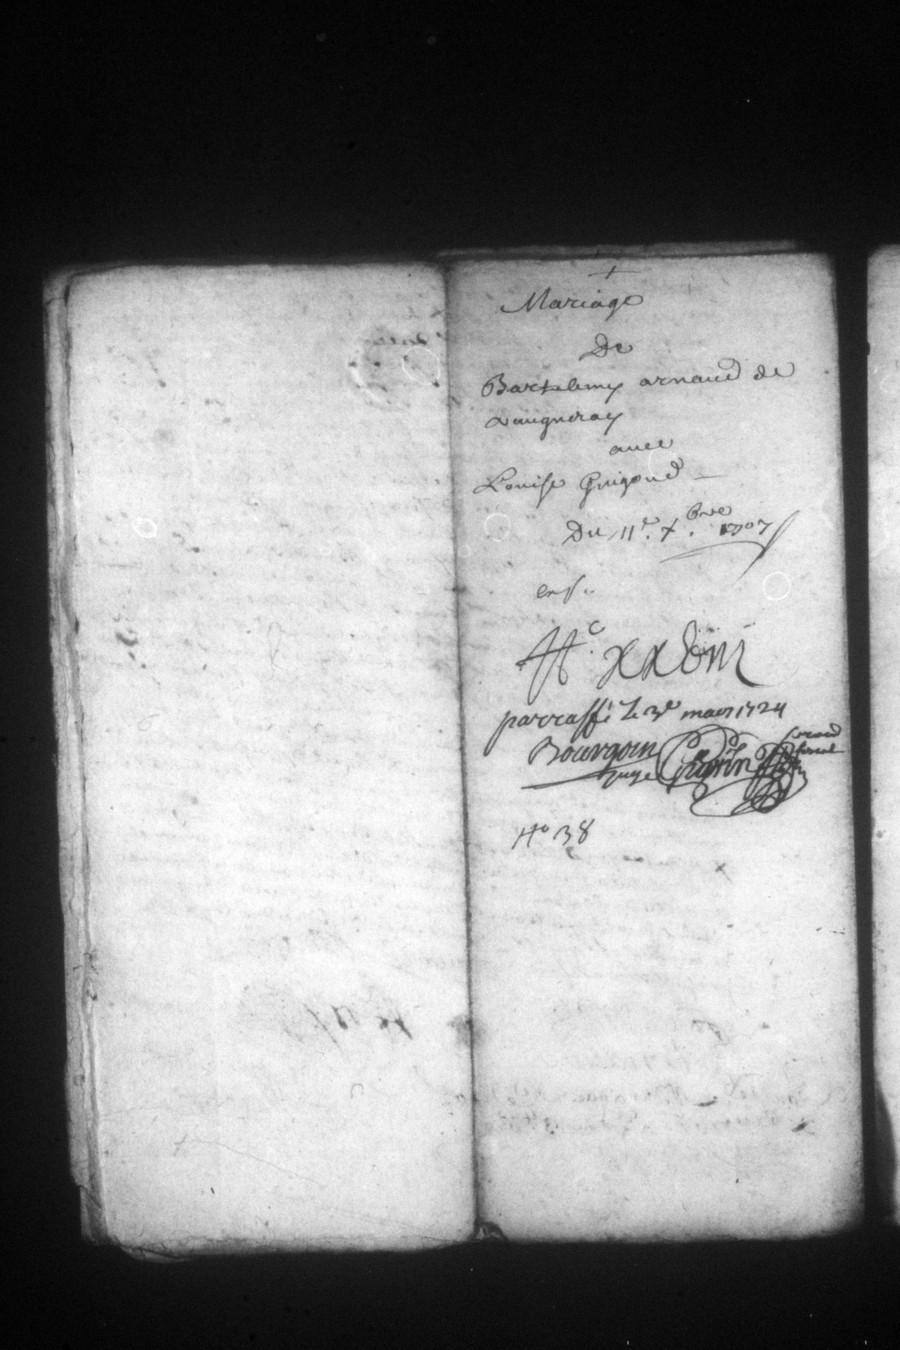 +
Mariage
De
Bartelemy arnaud de
Vaugneray
avec
Louise Guigoud
Du 11e. xbre. 1707
No. xxxviii
parraffé le 3e mars 1724
Bourgoin
juge Guerin
No 38